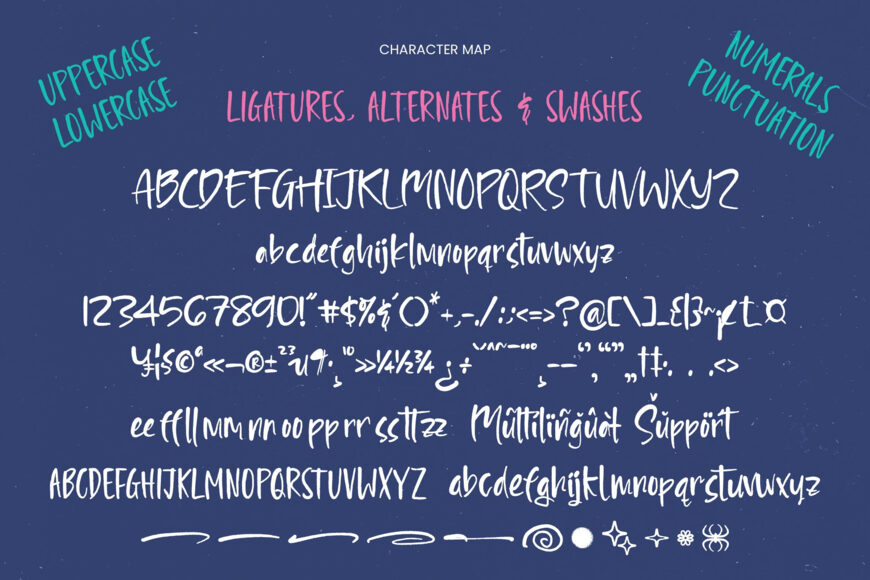 CHARACTER MAP
UPPERCASE
LOWERCASE
NUMERALS
PUNCTUATION
LIGATURES, ALTERNATES & SWASHES
ABCDEFGHIJKLMNOPQRSTUVWXYZ
abcdefghijklmnopqrstuvwxyz
1234567890!"#$%&'()*+,-./:;<=>?@[\]_{|}~¡¢£¤
¥¦§©ª«¬®±²³µ¶·¸¹º»¼½¾¿÷
ee ff ll mm nn oo pp rr ss tt zz Mûltïlïñğûàt Šŭppört
ABCDEFGHIJKLMNOPQRSTUVWXYZ abcdefghijklmnopqrstuvwxyz